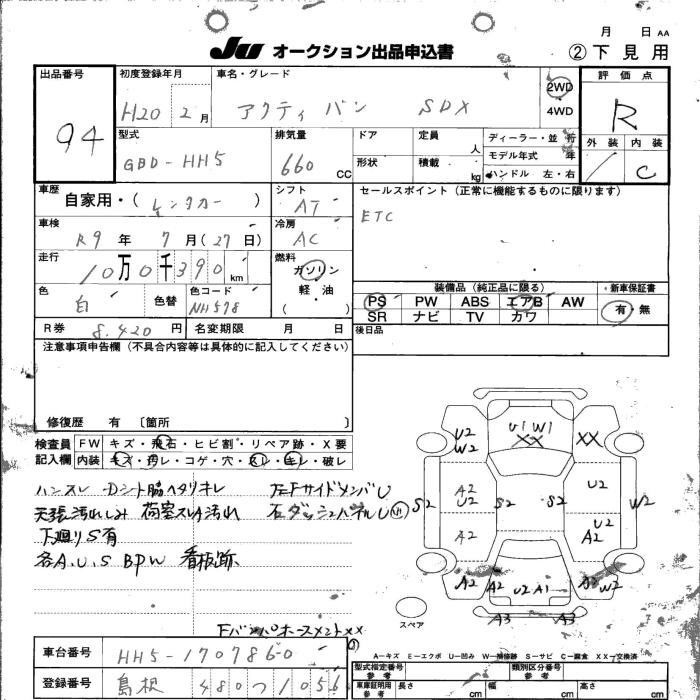 月 日 AA
JU オークション出品申込書 ②下見用
出品番号 94
初度登録年月 H20 2月
車名・グレード アクティ バン SDX
2WD
4WD
評価点 R
外装 内装 C
型式 GBD-HH5
排気量 660 CC
ドア
形状
定員 人
積載 kg
ディーラー・並行
モデル年式 年
ハンドル 左・右
車歴 自家用・(レンタカー)
シフト AT
セールスポイント(正常に機能するものに限ります)
ETC
車検 R9年7月(27日)
冷房 AC
走行 10万0千390km
燃料 ガソリン
軽・油
( )
色 白 色替
色コード NH578
装備品(純正品に限る)
新車保証書
PS PW ABS エアB AW
SR ナビ TV カワ
有・無
R券 8.420円
名変期限 月 日
後日品
注意事項申告欄(不具合内容等は具体的に記入してください)
修復歴 有 〔箇所 〕
検査員 FW キズ・飛石・ヒビ割・リペア跡・X要
記入欄 内装 キズ・汚レ・コゲ・穴・スレ・キレ・破レ
ハンスレ Dシート脇ヘタリキレ 左FサイドメンバU
天張汚れしみ 荷室スレA汚れ 右ダッシュパネルU
下廻りS有
各A.U.S BPW 看板跡
U1 W1
XX XX
U2
W2
A2
U2
A2
S2
S2
S2
U2
U2
A2
W2
A2 A2 U2 A1 A2 W2
A3 A3
スペア
FバンパホースメントXX
A-キズ E-エクボ U-凹み W-補修跡 S-サビ C-腐食 XX-交換済
車台番号 HH5-1707860
登録番号 島根 480つ1056
型式指定番号 類別区分番号
車庫証明用 長さ cm 幅 cm 高さ cm